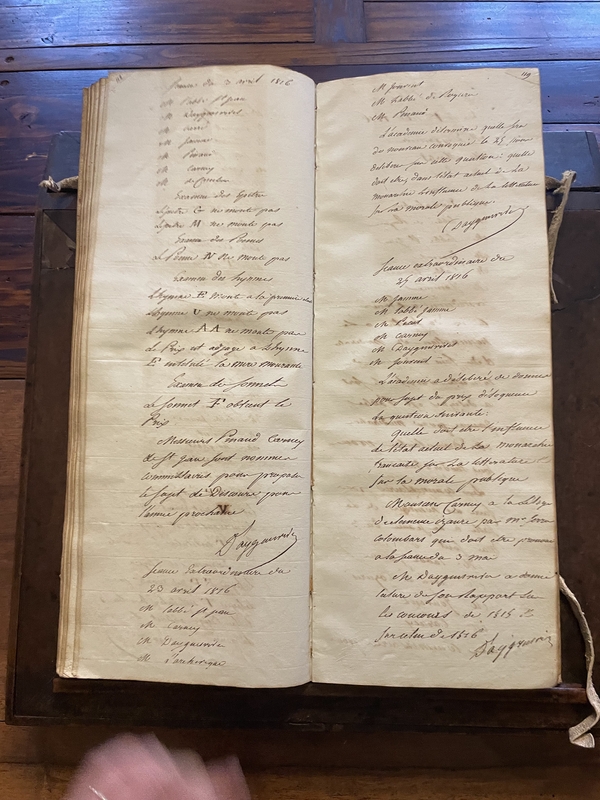 Seance du 3 avril 1816
M l'abbé St jean
M Dayguesvives
M
M jamme
M Pinaud
M Carney
M de
Examen des
ne monte pas
M ne monte pas
Examen des Poemes
Le Poeme N ne monte pas
Examen des hymnes
L'hymne E monte a la premiere
L'hymne U ne monte pas
L'hymne AA ne monte pas
Le Prix est adjugé a L'hymne
E intitulé la
Examen du Sonnet
Le Sonnet F obtient le
Prix
Messieurs Pinaud Carney
de St jean sont nommés
commissaires pour proposer
le sujet de Discours pour
l'année prochaine
Dayguesvives
Seance Extraordinaire du
23 avril 1816
M l'abbé St jean
M Carney
M Dayguesvives
M
119
M jouvent
M L'abbé de
M Pinaud
L'academie determine quelle sera
du morceau consigné le 25
deliberé sur cette question: quelle
doit etre, dans l'etat actuel de La
monarchie l'influence de la litterature
sur la morale publique.
Dayguesvives
Seance extraordinaire du
25 avril 1816
M jamme
M l'abbé jamme
M
M Carney
M Dayguesvives
M jouvent
L'academie a deliberé de donner
pour sujet du prix d'eloquence
la question suivante:
Quelle doit etre l'influence
de l'etat actuel de La monarchie
francaise sur La litterature
sur la morale publique
Monsieur Carney a lu L'eloge
de clemence isaure par mr
qui doit etre prononcé
a la seance du 3 mai
M Dayguesvives a donné
lecture de son Rapport sur
les concours de 1815 &
sur celui de 1816
Dayguesvives